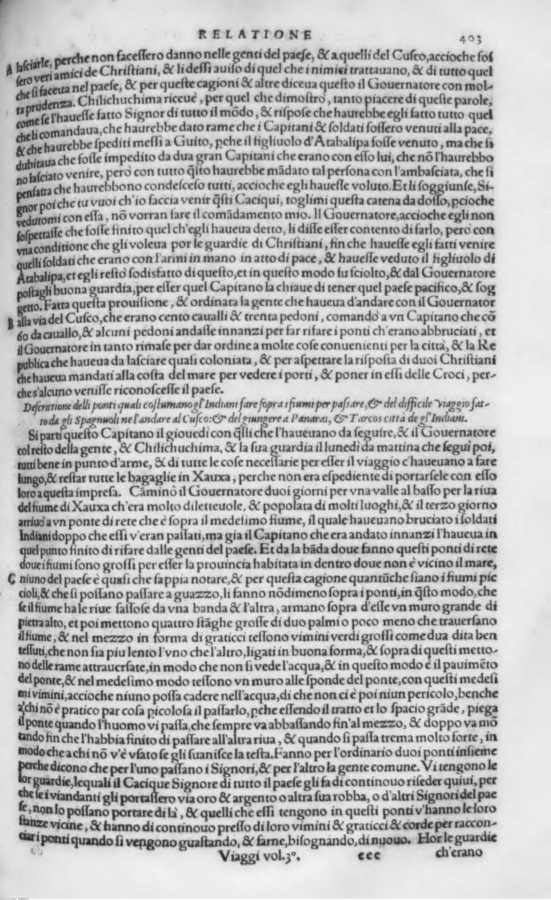 RELATIONE 403
A lasciarle, perche non facessero danno nelle genti del paese, & a quelli del Cusco, accioche fos
sero veri amici de Christiani, & li dessi auiso di quel che i nimici trattauano, & di tutto quel
che si faceua nel paese, & per queste cagioni & altre diceua questo il Gouernatore con mol-
ta prudenza. Chilichuchima riceuè, per quel che dimostrò, tanto piacere di queste parole,
come se l'hauesse fatto Signor di tutto il mõdo, & rispose che haurebbe egli fatto tutto quel
che li comandaua, che haurebbe dato rame che i Capitani & soldati fossero venuti alla pace,
& che haurebbe spediti messi a Guito, ꝑche il figliuolo d'Atabalipa fosse venuto, ma che si
dubitaua che fosse impedito da dua gran Capitani che erano con esso lui, che nõ l'haurebbo
no lasciato venire, però con tutto q̃sto haurebbe mãdato tal persona con l'ambasciata, che si
pensaua che haurebbono condesceso tutti, accioche egli hauesse voluto. Et li soggiunse, Si-
gnor poi che tu vuoi ch'io faccia venir q̃sti Caciqui, toglimi questa catena da dosso, ꝑcioche
vedutomi con essa, nõ vorran fare il comãdamento mio. Il Gouernatore, accioche egli non
sospettasse che fosse finito quel ch'egli haueua detto, li disse esser contento di farlo, però con
vna conditione che gli voleua por le guardie di Christiani, fin che hauesse egli fatti venire
quelli soldati che erano con l'armi in mano in atto di pace, & hauesse veduto il figliuolo di
Atabalipa, et egli restò sodisfatto di questo, et in questo modo fu sciolto, & dal Gouernatore
postagli buona guardia, per esser quel Capitano la chiaue di tener quel paese pacifico, & sog
getto. Fatta questa prouisione, & ordinata la gente che haueua d'andare con il Gouernator
B alla via del Cusco, che erano cento caualli & trenta pedoni, comandò a vn Capitano che cõ
60 da cauallo, & alcuni pedoni andasse innanzi per far rifare i ponti ch'erano abbruciati, et
il Gouernatore in tanto rimase per dar ordine a molte cose conuenienti per la città, & la Re
publica che haueua da lasciare quasi coloniata, & per aspettare la risposta di duoi Christiani
che haueua mandati alla costa del mare per vedere i porti, & poner in essi delle Croci, per-
che s'alcuno venisse riconoscesse il paese.
Descrittione delli ponti quali costumano gl'Indiani fare sopra i fiumi per passare, & del difficile viaggio fat-
to da gli Spagnuoli nel'andare al Cusco: & del giungere a Panarai, & Tarcos città de gl'Indiani.
Si partì questo Capitano il giouedì con q̃lli che l'haueuano da seguire, & il Gouernatore
col resto della gente, & Chilichuchima, & la sua guardia il lunedì da mattina che seguì poi,
tutti bene in punto d'arme, & di tutte le cose necessarie per esser il viaggio c'haueuano a fare
lungo, & restar tutte le bagaglie in Xauxa, perche non era espediente di portarsele con esso
loro a questa impresa. Caminò il Gouernatore duoi giorni per vna valle al basso per la riua
del fiume di Xauxa ch'era molto diletteuole, & popolata di molti luoghi, & il terzo giorno
arriuò a vn ponte di rete che è sopra il medesimo fiume, il quale haueuano bruciato i soldati
Indiani doppo che essi v'eran passati, ma già il Capitano che era andato innanzi l'haueua in
quel punto finito di rifare dalle genti del paese. Et da la bãda doue fanno questi ponti di rete
doue i fiumi sono grossi per esser la prouincia habitata in dentro doue non è vicino il mare,
C niuno del paese è quasi che sappia notare, & per questa cagione quantũche siano i fiumi pic
cioli, & che si possano passare a guazzo, li fanno nõdimeno sopra i ponti, in q̃sto modo, che
se il fiume ha le riue sassose da vna banda & l'altra, armano sopra d'esse vn muro grande di
pietra alto, et poi mettono quattro stãghe grosse di duo palmi o poco meno che trauersano
il fiume, & nel mezzo in forma di graticci tessono vimini verdi grossi come dua dita ben
tessuti, che non sia piu lento l'vno che l'altro, ligati in buona forma, & sopra di questi metto-
no delle rame attrauersate, in modo che non si vede l'acqua, & in questo modo è il pauimẽto
del ponte, & nel medesimo modo tessono vn muro alle sponde del ponte, con questi medesi
mi vimini, accioche niuno possa cadere nell'acqua, di che non ci è poi niun pericolo, benche
a chi nõ è pratico par cosa picolosa il passarlo, ꝑche essendo il tratto et lo spacio grãde, piega
il ponte quando l'huomo vi passa, che sempre va abbassando fin'al mezzo, & doppo va mõ
tando fin che l'habbia finito di passare all'altra riua, & quando si passa trema molto forte, in
modo che a chi nõ v'è vsato se gli suanisce la testa. Fanno per l'ordinario duoi ponti insieme
perche dicono che per l'uno passano i Signori, & per l'altro la gente comune. Vi tengono le
lor guardie, lequali il Cacique Signore di tutto il paese gli fa di continouo riseder quiui, per
che se i viandanti gli portassero via oro & argento o altra sua robba, o d'altri Signori del pae
se, non lo possano portare di là, & quelli che essi tengono in questi ponti v'hanno le loro
stanze vicine, & hanno di continouo presso di loro vimini & graticci & corde per raccon-
ciar i ponti quando si vengono guastando, & farne, bisognando, di nuouo. Hor le guardie
Viaggi vol.3°. eee ch'erano